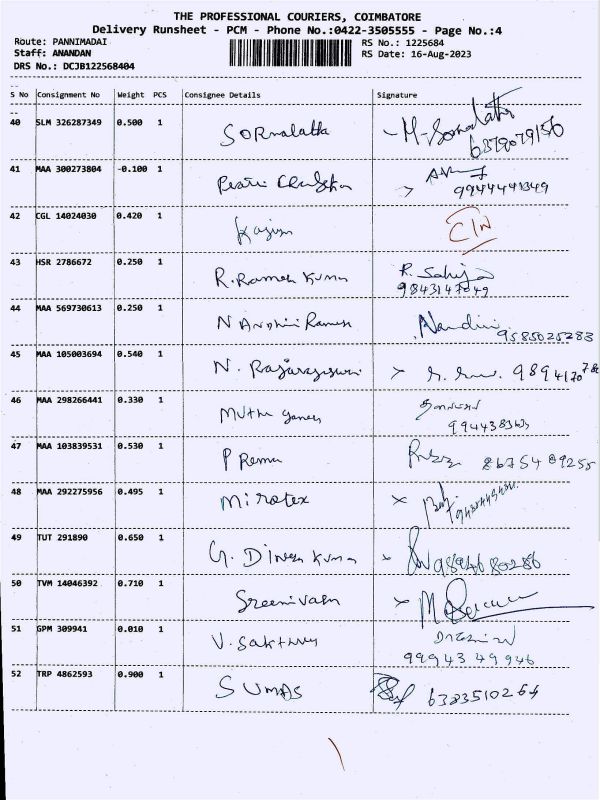 THE PROFESSIONAL COURIERS, COIMBATORE
Delivery Runsheet - PCM - Phone No.:0422-3505555 - Page No.:4
Route: PANNIMADAI RS No.: 1225684
Staff: ANANDAN RS Date: 16-Aug-2023
DRS No.: DCJB122568404
S No Consignment No Weight PCS Consignee Details Signature
40 SLM 326287349 0.500 1 Sornalatha M-Sornalatha
6379079156
41 MAA 300273804 -0.100 1
9944441349
42 CGL 14024030 0.420 1
43 HSR 2786672 0.250 1 R.Ramesh Kumar R. Sahija
9843147049
44 MAA 569730613 0.250 1 Nandhini Ramesh Nandini 9585025283
45 MAA 105003694 0.540 1 N. Rajarajeswari
46 MAA 298266441 0.330 1 Muthu Ganesh
47 MAA 103839531 0.530 1 P Rema 8675489255
48 MAA 292275956 0.495 1 Mirotex
49 TUT 291890 0.650 1 G. Dinesh Kumar 9894680286
50 TVM 14046392 0.710 1 Sreenivasan
51 GPM 309941 0.010 1 V. Sakthivel
99943 49946
52 TRP 4862593 0.900 1 SUMAS 6383510264